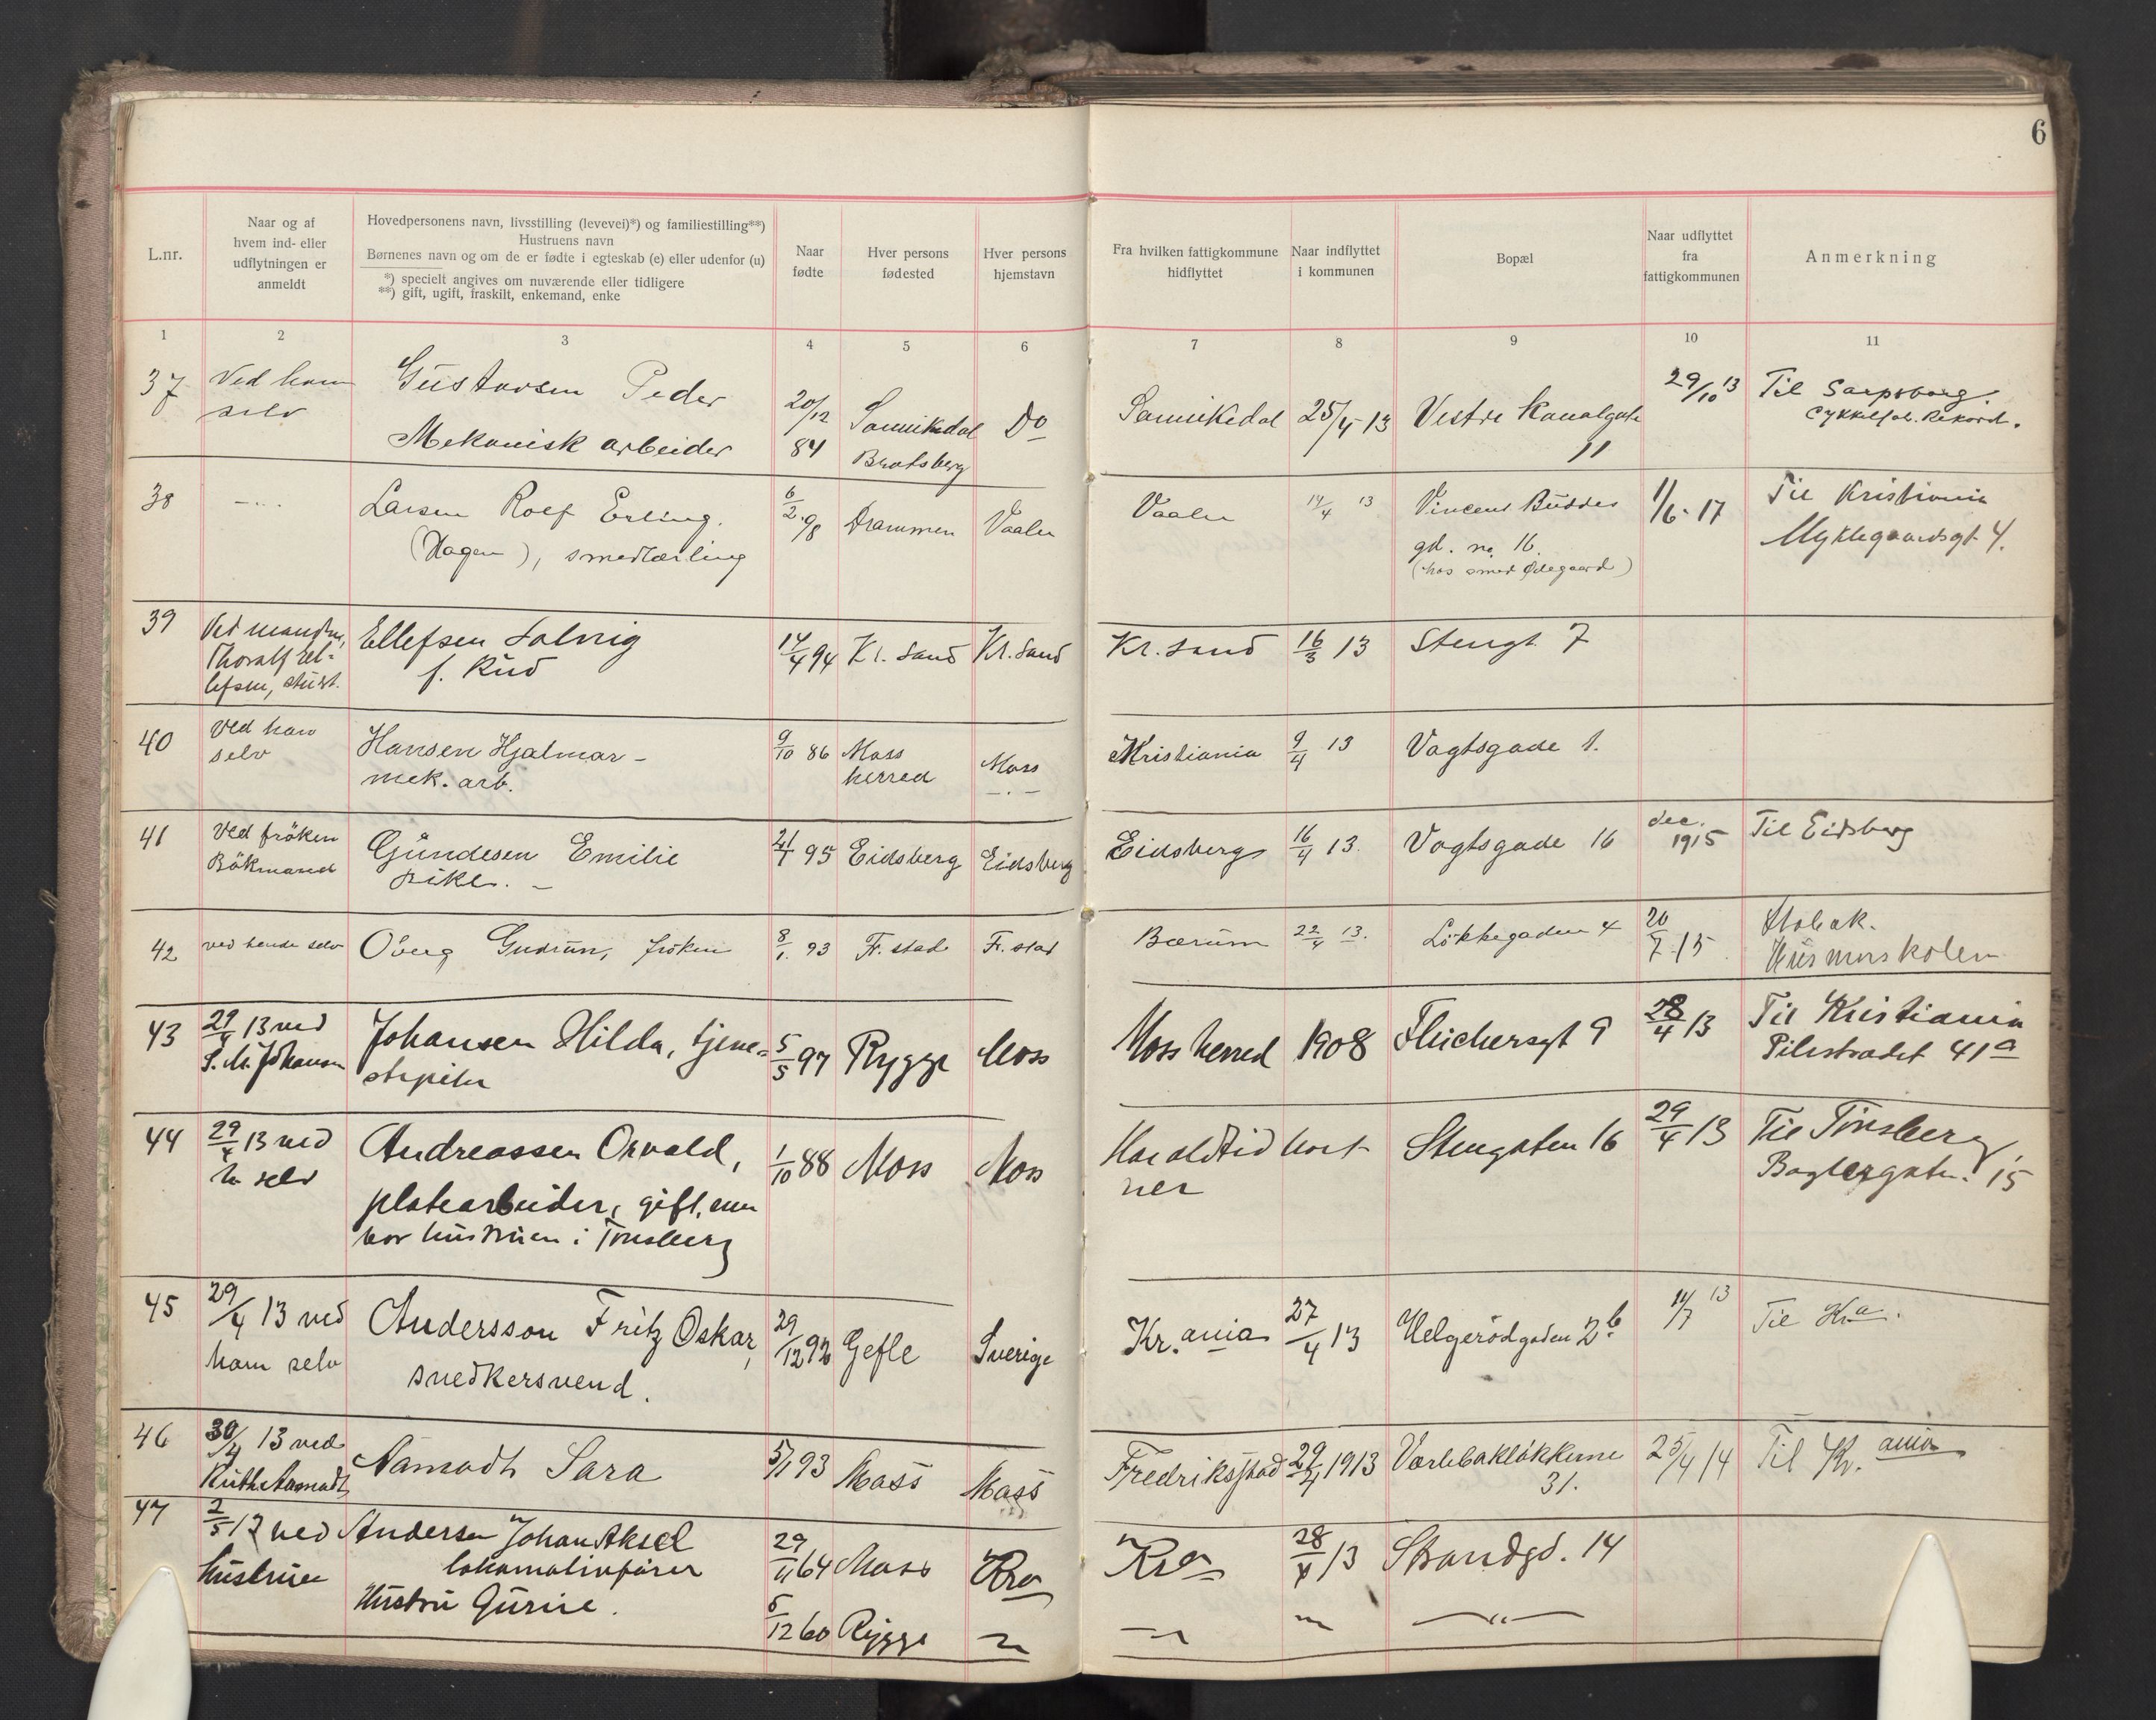 6
L.nr.
Naar og af
hvem ind- eller
udflytningen er
anmeldt
Hovedpersonens navn, livsstilling (levevei)*) og familiestilling**)
Hustruens navn
Børnenes navn og om de er fødte i egteskab (e) eller udenfor (u)
*) specielt angives om nuværende eller tidligere
**) gift, ugift, fraskilt, enkemand, enke
Naar
fødte
Hver persons
fødested
Hver persons
hjemstavn
Fra hvilken fattigkommune
hidflyttet
Naar indflyttet
i kommunen
Bopæl
Naar udflyttet
fra
fattigkommunen
Anmerkning
1 2 3 4 5 6 7 8 9 10 11
37 Ved ham Gustavsen Peder 29/10 13 Til Sarpsborg.
selv 20/12 Sannikedal Do Sannikedal 25/4-13 Vestre Kanalgate Cykkelfab. Rekord.
Mekanisk arbeider 84 Bratsberg 11
38 Larsen Rolf Erling. 6/2 98 Drammen Vaaler Vaaler 14/4 13 Vincent Buddes 1/6-17 Til Kristiania
(Hagen), smedlærling gd. no. 16. Myklegaardsgt 4.
(hos smed Ødegaard)
39 Ved manden, Ellefsen Solveig 14/4 94 Kr. Sand Kr. Sand Kr. sand 16/3 13 Stengt. 7
Thoralf El- f. Rud
lefsen,
40 Ved ham Hansen Hjalmar - 9/10 86 Moss Moss Kristiania 9/4 13 Vogtsgade 1.
selv mek. arb. herred
41 Ved frøken Gundesen Emilie 95 Eidsberg Eidsberg Eidsberg 16/4 13. Vogtsgade 16 dec. 1915 Til Eidsberg
Bökmand pike. -
42 ved hende selv Öberg Gudrun, frøken 8/1. 93 Fr. stad Fr. stad Bærum 22/4 13. Løkkegaden 4 20/7-15 Drøbak.
Husmorskolen
43 29/4 13 ved Johansen Hilda, tjene- 5/5 97 Rygge Moss Moss herred 1908 Fleichersgt 9 28/4 13 Til Kristiania
S. M. Johansen stepike Pilestrædet 41a
44 29/4 13 ved Andreassen Osvald, 1/10 88 Moss Moss Haraldrid Stengaten 16 29/4 13 Til Tönsberg,
h selv platearbeider, gift, men ner Baglergaten. 15
bor hustruen i Tönsberg
45 29/4 13 ved Andersson Fritz Oskar, 29/12 92 Gefle Sverige Kr.ania 27/4 13 Helgerödgaden 2b 11/7 13 Til Kra.
ham selv snedkersvend.
46 30/4 13 ved Aamodt Sara 93 Moss Moss Fredriksstad 29/4 1913 Varlebakløkkerne 25/4 14 Til Kr. ania
Ruth Aamodt 31.
47 2/5 13 ved Andersen Johan Aksel 29/11 64 Moss Kra Kra 28/4 13 Strandgd. 14
hustruen lokomotivfører
Hustru Gurine. 5/12 60 Rygge " " " "